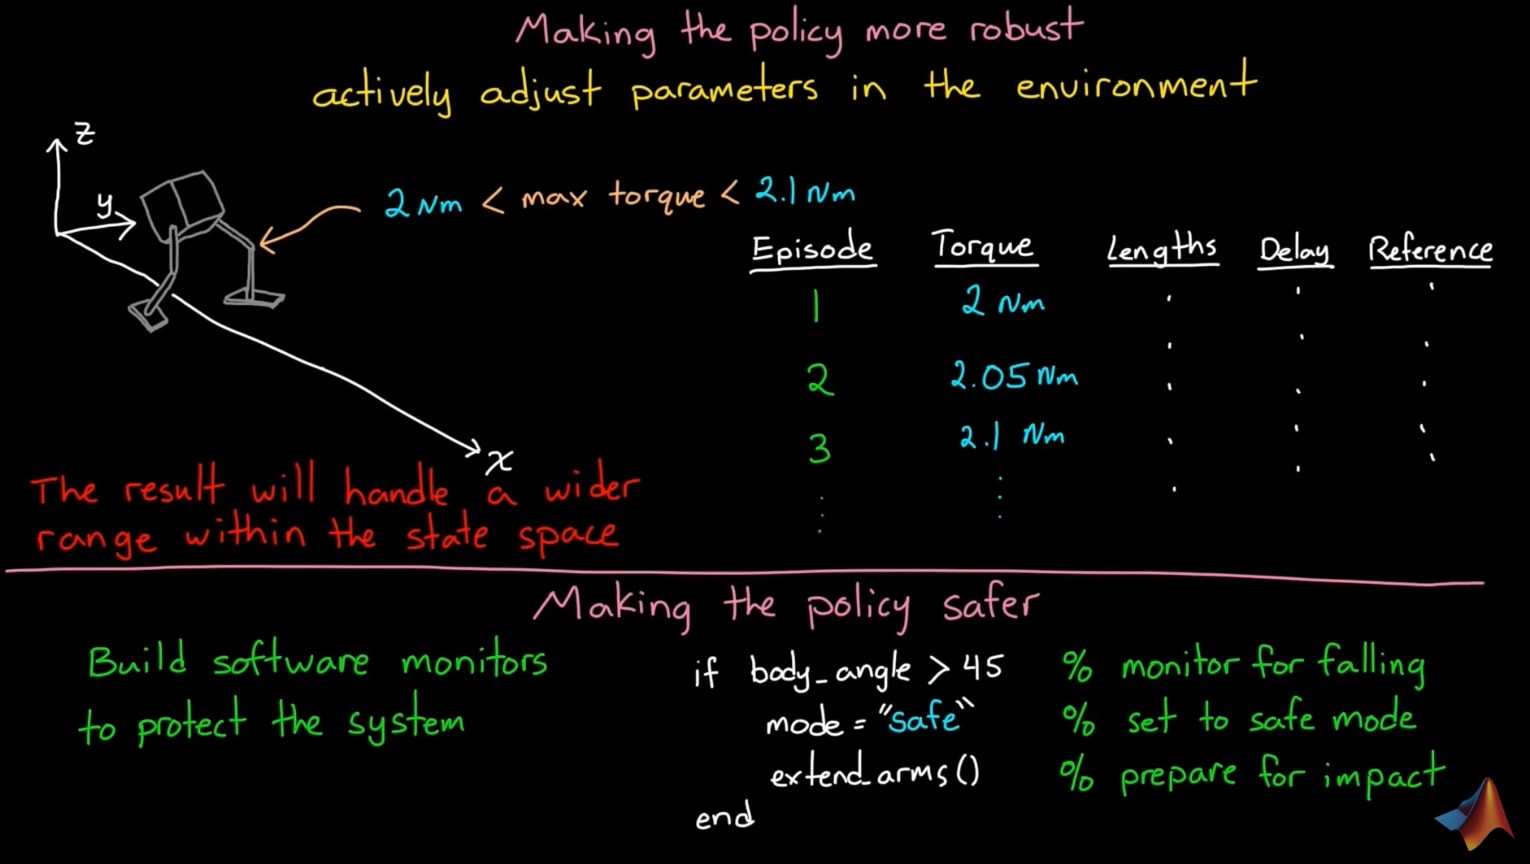 Making the policy more robust
actively adjust parameters in the environment
z
y
x
2 Nm < max torque < 2.1 Nm
Episode Torque Lengths Delay Reference
1 2 Nm
2 2.05 Nm
3 2.1 Nm
The result will handle a wider
range within the state space
Making the policy safer
Build software monitors
to protect the system
if body_angle > 45 % monitor for falling
mode = "safe" % set to safe mode
extend_arms() % prepare for impact
end